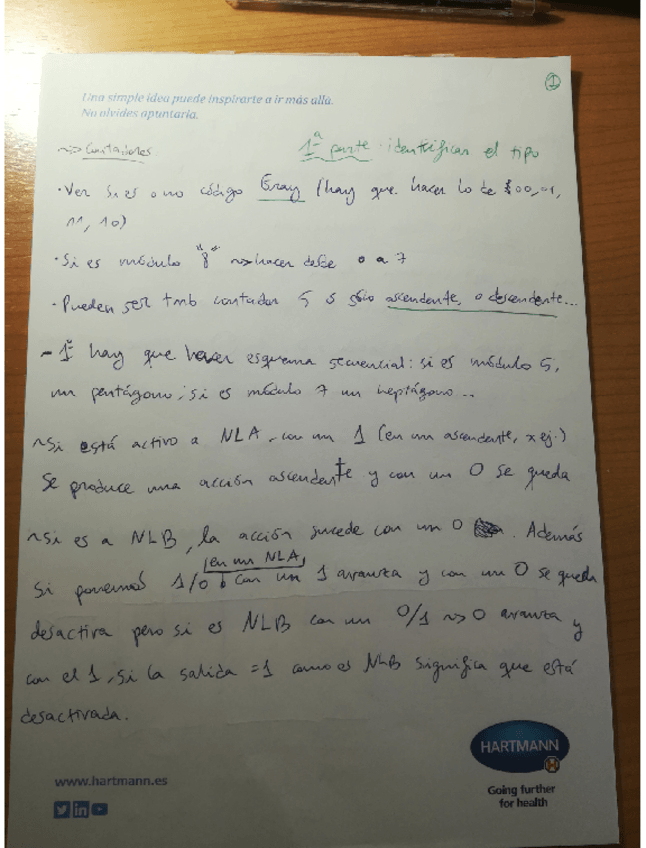 1
Una simple idea puede inspirarte a ir más allá.
No olvides apuntarla.
~> Contadores
1ª parte: identificar el tipo
· Ver si es o no código Gray (hay que hacer lo de 00, 01,
11, 10)
· Si es módulo "8" ~> hacer desde 0 a 7
· Pueden ser tmb contador 5 s sólo ascendente, o descendente...
- 1º hay que hacer esquema secuencial: si es módulo 5,
un pentágono; si es módulo 7 un heptágono...
~Si está activo a NLA, con un 1 (en un ascendente, x ej.)
se produce una acción ascendente y con un 0 se queda
~Si es a NLB, la acción sucede con un 0. Además
(en un NLA)
si ponemos 1/0 con un 1 avanza y con un 0 se queda
desactiva pero si es NLB con un 0/1 ~> 0 avanza y
con el 1, si la salida = 1 como es NLB significa que está
desactivada.
HARTMANN
Going further
for health
www.hartmann.es